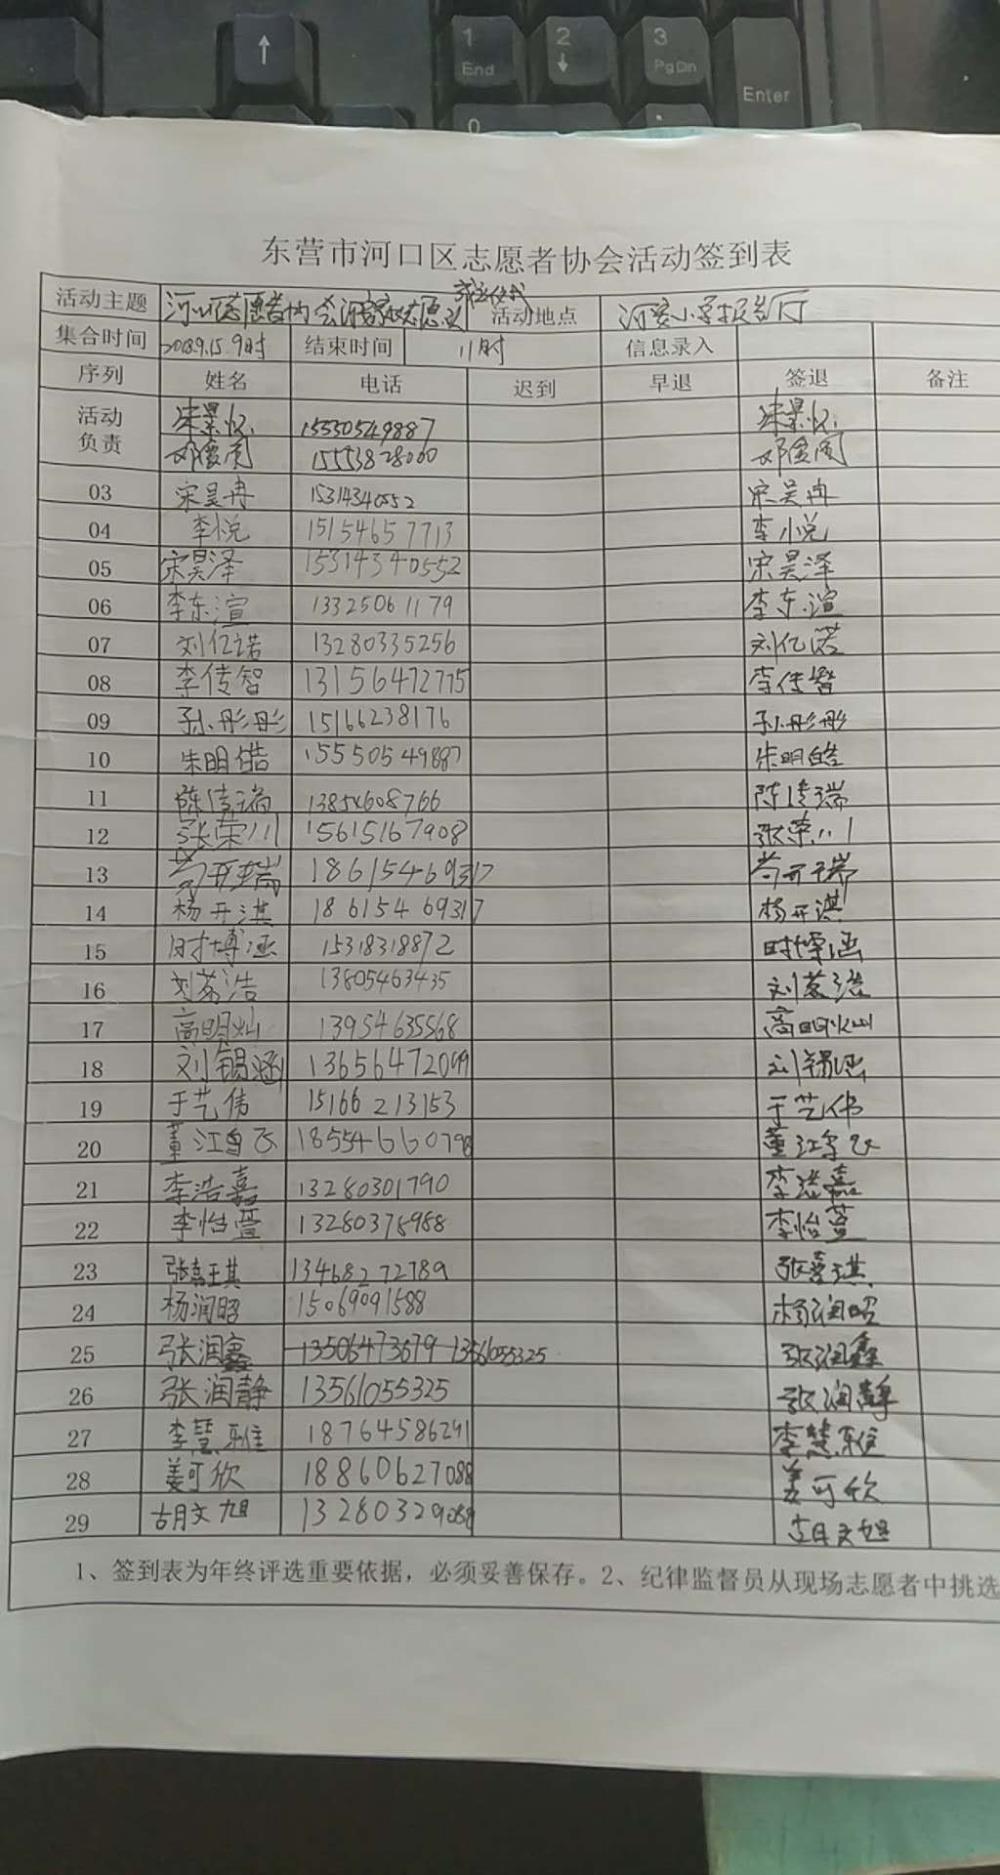 ↑
1
End
2
↓
3
PgDn
Enter
0
.
东营市河口区志愿者协会活动签到表
活动主题 河口区志愿者协会河安校志愿队成立仪式 活动地点 河安小学报告厅
集合时间 2018.9.15.9时 结束时间 11时 信息录入
序列 姓名 电话 迟到 早退 签退 备注
活动
负责
15550549887
15553828000
03 宋昊冉 15314340552 宋昊冉
04 李悦 15154657713 李小悦
05 宋昊泽 15314340552 宋昊泽
06 李东渲 13325061179 李东渲
07 刘亿诺 13280335256 刘亿诺
08 李传智 13156472775 李传智
09 孙彤彤 15166238176 孙彤彤
10 朱明皓 15550549887 朱明皓
11 陈倩瑞 13854608766 陈倩瑞
12 张荣川 15615167908 张荣川
13 苟开瑞 18615469317 苟开瑞
14 杨开淇 18615469317 杨开淇
15 时博涵 15318318872 时博涵
16 刘茗浩 13805463435 刘茗浩
17 高明灿 13954635568 高明灿
18 刘锡涵 13656472099 刘锡涵
19 于艺伟 15166213153 于艺伟
20 董江 18554660798 董江
21 李浩嘉 13280301790 李浩嘉
22 李怡萱 13280378988 李怡萱
23 张嘉琪 13468272789 张嘉琪
24 杨润昭 15069091588 杨润昭
25 张润鑫 13506473679 13561055325 张润鑫
26 张润静 13561055325 张润静
27 李慧雅 18764586291 李慧雅
28 姜可欣 18860627088 姜可欣
29 胡文旭 13280329088 胡文旭
1、签到表为年终评选重要依据，必须妥善保存。2、纪律监督员从现场志愿者中挑选